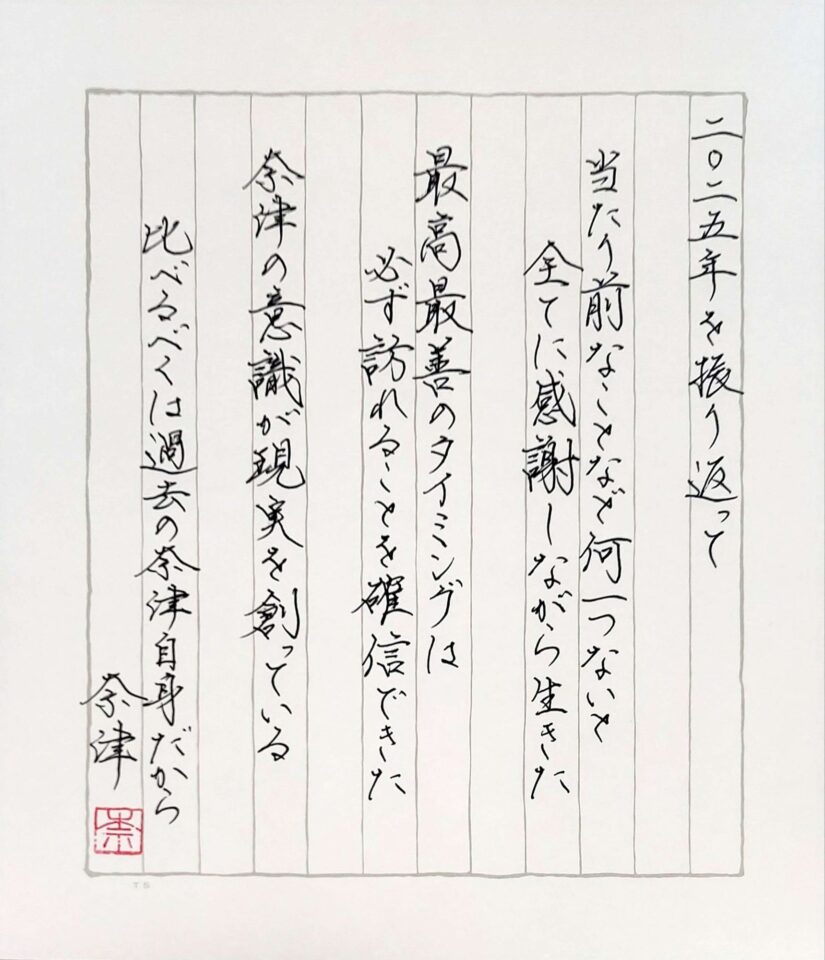 二〇二五年を振り返って
当たり前なことなど何一つないと
全てに感謝しながら生きた
最高最善のタイミングは
必ず訪れることを確信できた
奈津の意識が現実を創っている
比べるべくは過去の奈津自身だから
奈津
奈
TS